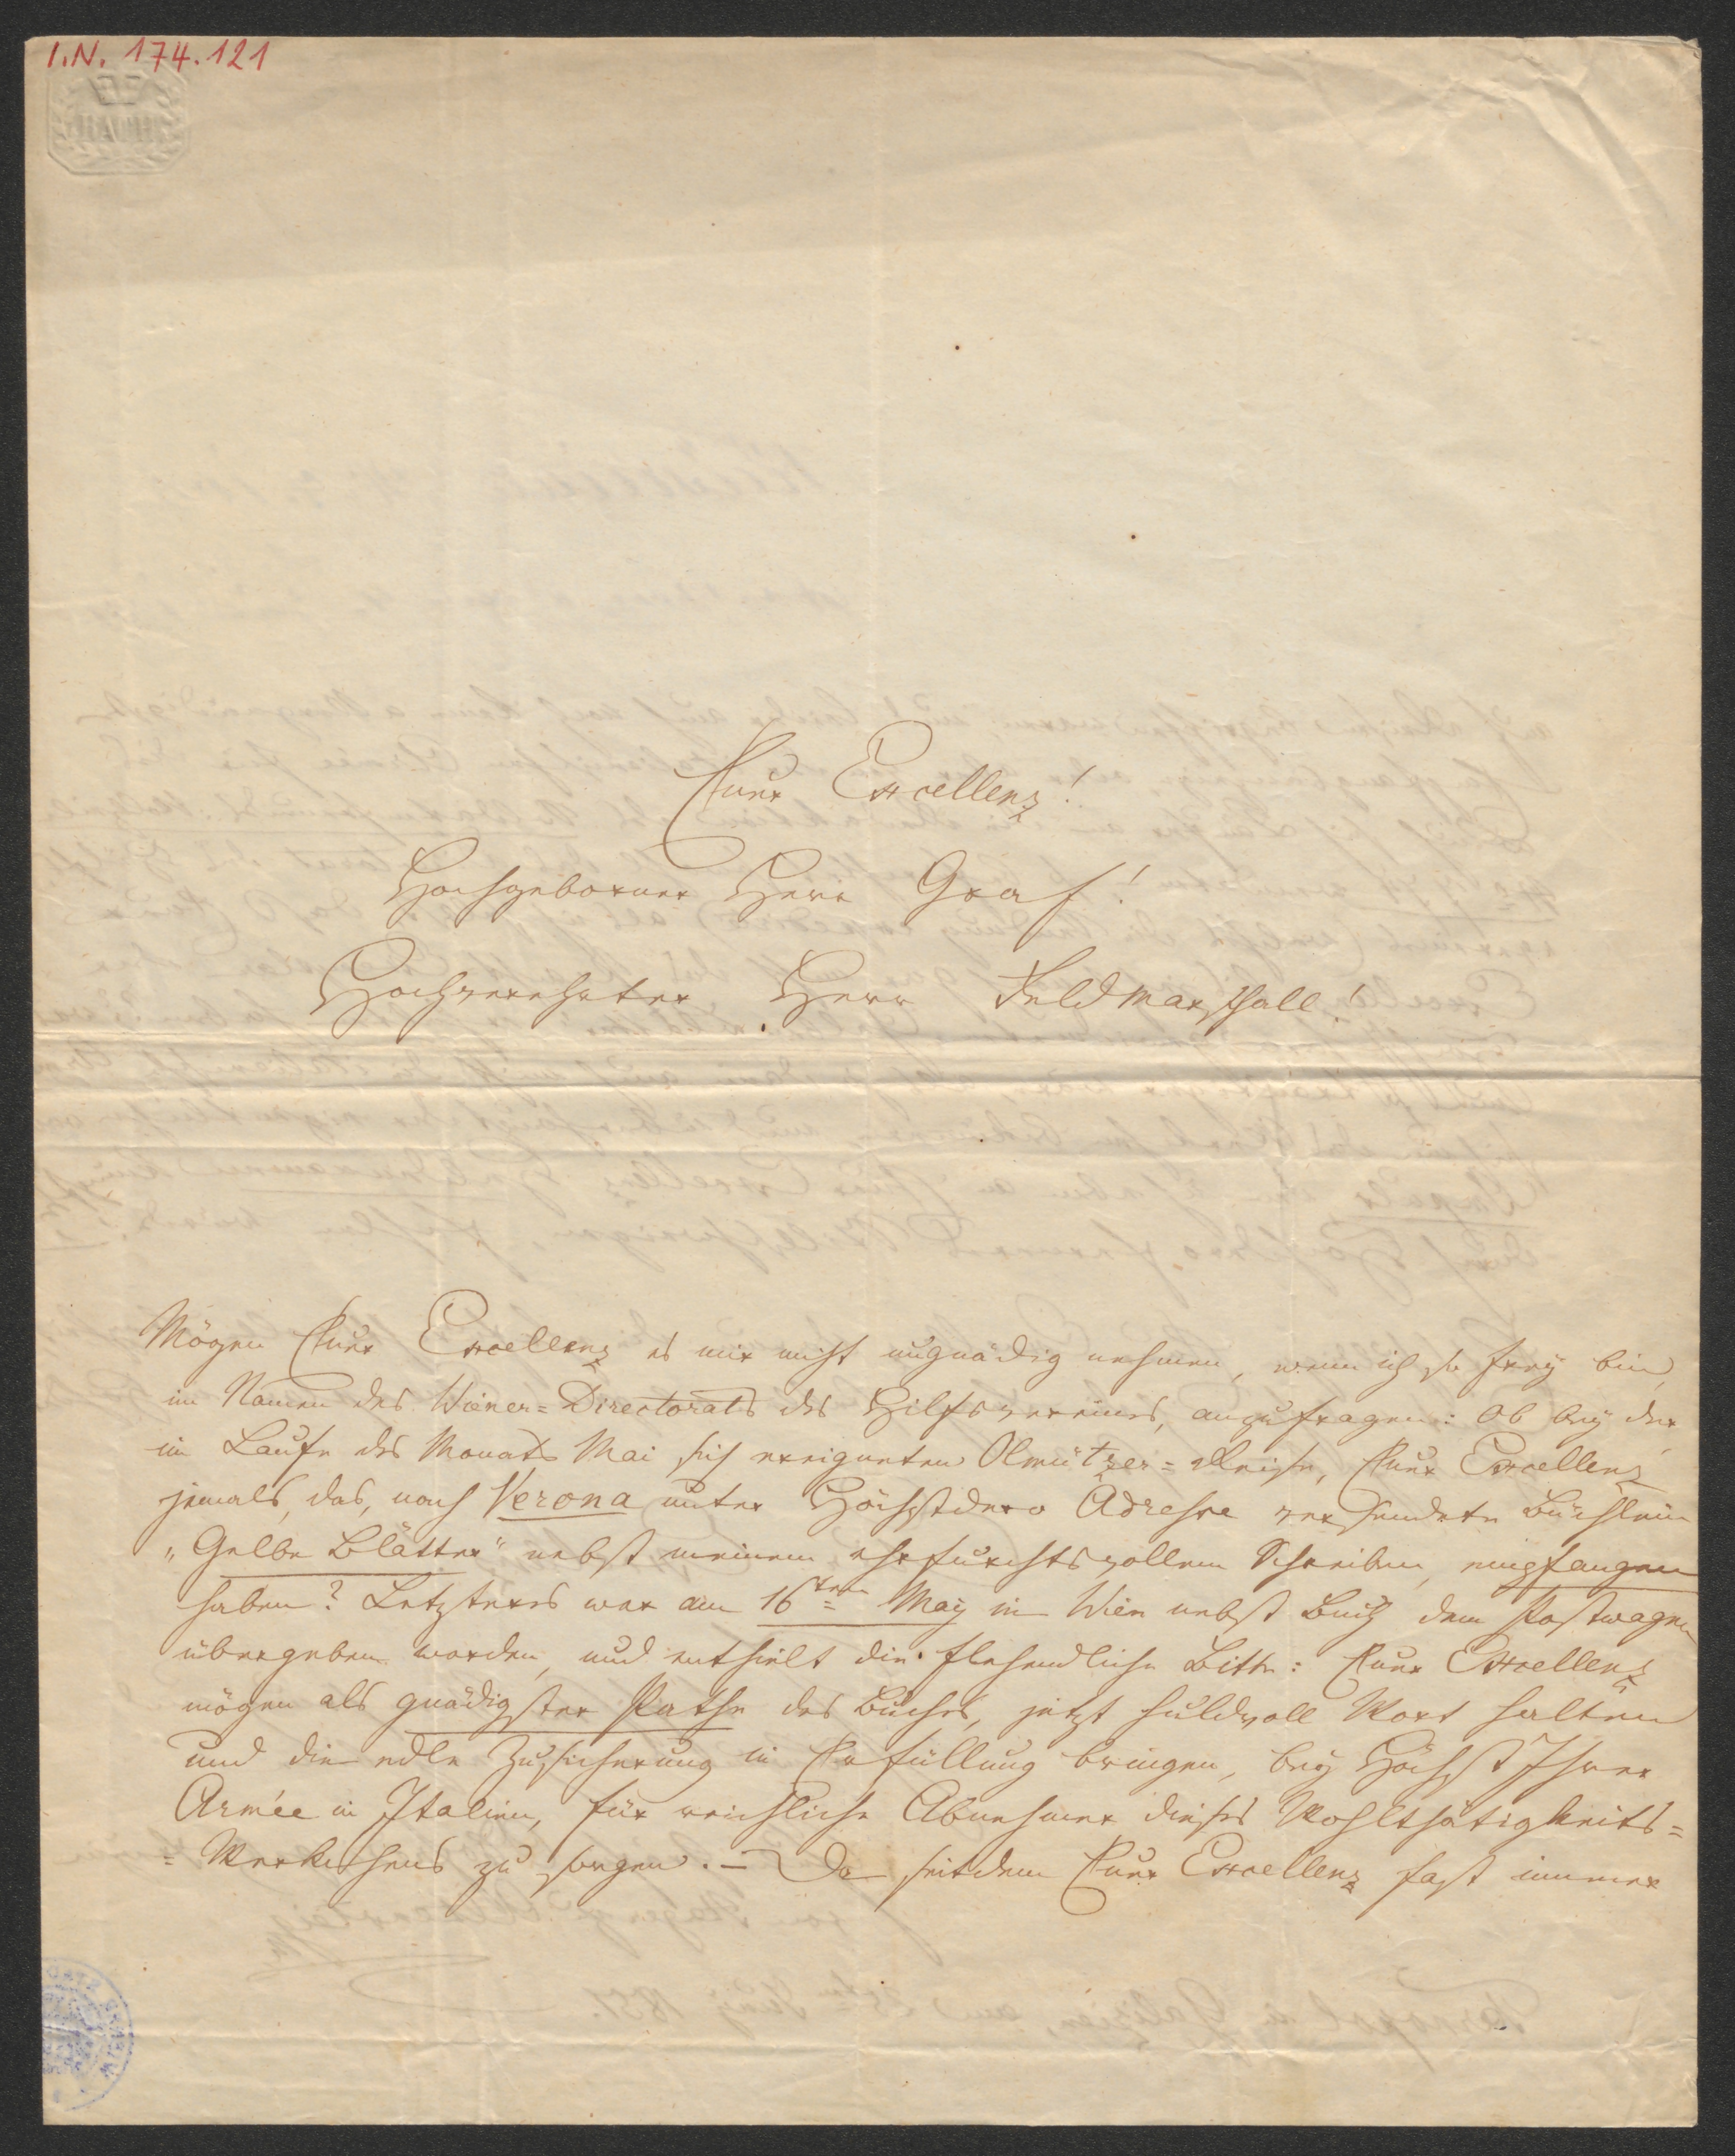 I.N. 174.121
BATH
Euer Excellenz!
Hochgeborner Herr Graf!
Hochverehrter Herr Feldmarschall!
Mögen Euer Excellenz es mir nicht ungnädig nehmen, wenn ich so frey bin,
im Namen des Wiener=Directorats des Hilfsvereines, anzufragen: Ob bey der
im Laufe des Monats Mai sich ereigneten Olmützer=Reise, Euer Excellenz
jemals, das, nach Verona unter Höchstdero Adresse versendete Büchlein
„Gelbe Blätter" nebst meinem ehrfurchtsvollem Schreiben, empfangen
haben? Letzteres war am 16ten May in Wien nebst Buch dem Postwagen
übergeben worden, und enthielt die flehendliche Bitte: Euer Excellenz
mögen als gnädigster Pathe des Buches, jetzt huldvoll Wort halten
und die edle Zusicherung in Erfüllung bringen, bey Höchst Ihrer
Armée in Italien, für reichliche Abnehmer dieses Wohlthätigkeits=
=Werkchens zu sorgen. — Da seitdem Euer Excellenz fast immer